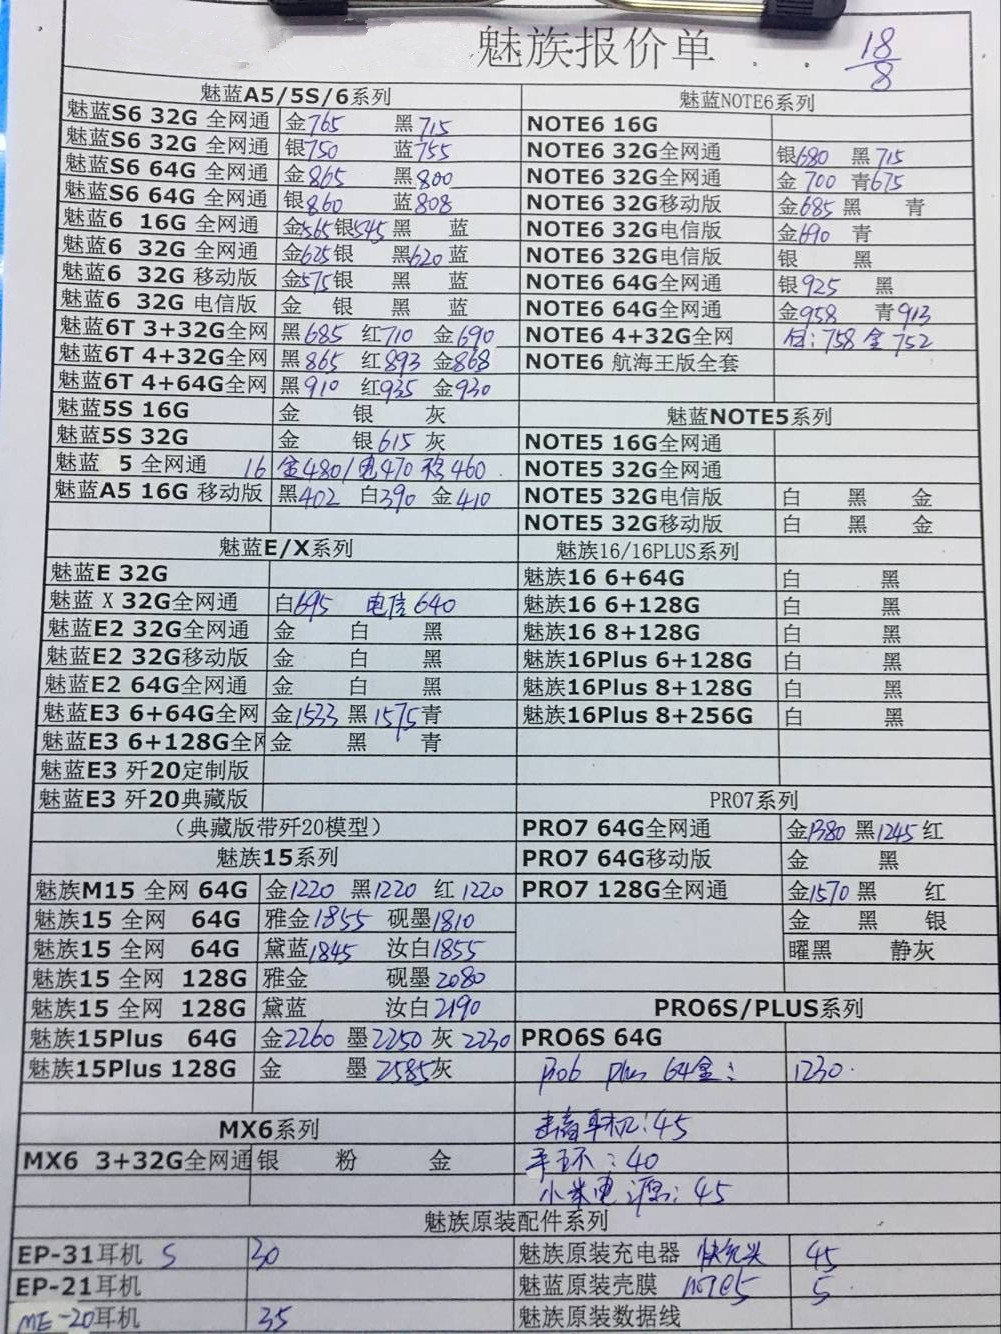 魅族报价单 18/8
魅蓝A5/5S/6系列
魅蓝S6 32G 全网通 金765 黑715
魅蓝S6 32G 全网通 银750 蓝755
魅蓝S6 64G 全网通 金865 黑800
魅蓝S6 64G 全网通 银860 蓝808
魅蓝6 16G 全网通 金565 银545 黑 蓝
魅蓝6 32G 全网通 金625 银 黑620 蓝
魅蓝6 32G 移动版 金575 银 黑 蓝
魅蓝6 32G 电信版 金 银 黑 蓝
魅蓝6T 3+32G全网 黑685 红710 金690
魅蓝6T 4+32G全网 黑865 红893 金868
魅蓝6T 4+64G全网 黑910 红935 金930
魅蓝5S 16G 金 银 灰
魅蓝5S 32G 金 银615 灰
魅蓝 5 全网通 16 金480/电470 移460
魅蓝A5 16G 移动版 黑402 白390 金410
魅蓝E/X系列
魅蓝E 32G
魅蓝 X 32G全网通 白695 电信640
魅蓝E2 32G全网通 金 白 黑
魅蓝E2 32G移动版 金 白 黑
魅蓝E2 64G全网通 金 白 黑
魅蓝E3 6+64G全网 金1533 黑1575 青
魅蓝E3 6+128G全网 金 黑 青
魅蓝E3 歼20定制版
魅蓝E3 歼20典藏版
（典藏版带歼20模型）
魅族15系列
魅族M15 全网 64G 金1220 黑1220 红1220
魅族15 全网 64G 雅金1855 砚墨1810
魅族15 全网 64G 黛蓝1845 汝白1855
魅族15 全网 128G 雅金 砚墨2080
魅族15 全网 128G 黛蓝 汝白2190
魅族15Plus 64G 金2260 墨2250 灰2230
魅族15Plus 128G 金 墨2585 灰
MX6系列
MX6 3+32G全网通 银 粉 金
魅蓝NOTE6系列
NOTE6 16G
NOTE6 32G全网通 银680 黑715
NOTE6 32G全网通 金700 青675
NOTE6 32G移动版 金685 黑 青
NOTE6 32G电信版 金690 青
NOTE6 32G电信版 银 黑
NOTE6 64G全网通 银925 黑
NOTE6 64G全网通 金958 青913
NOTE6 4+32G全网 :758 金752
NOTE6 航海王版全套
魅蓝NOTE5系列
NOTE5 16G全网通
NOTE5 32G全网通
NOTE5 32G电信版 白 黑 金
NOTE5 32G移动版 白 黑 金
魅族16/16PLUS系列
魅族16 6+64G 白 黑
魅族16 6+128G 白 黑
魅族16 8+128G 白 黑
魅族16Plus 6+128G 白 黑
魅族16Plus 8+128G 白 黑
魅族16Plus 8+256G 白 黑
PRO7系列
PRO7 64G全网通 金1380 黑1245 红
PRO7 64G移动版 金 黑
PRO7 128G全网通 金1570 黑 红
金 黑 银
曜黑 静灰
PRO6S/PLUS系列
PRO6S 64G
Pro6 plus 64金: 1230.
耳机:45
手环:40
小米电源:45
魅族原装配件系列
EP-31耳机 S 30
EP-21耳机
ME-20耳机 35
魅族原装充电器 快充头 45
魅蓝原装壳膜 NOTE5 5.
魅族原装数据线